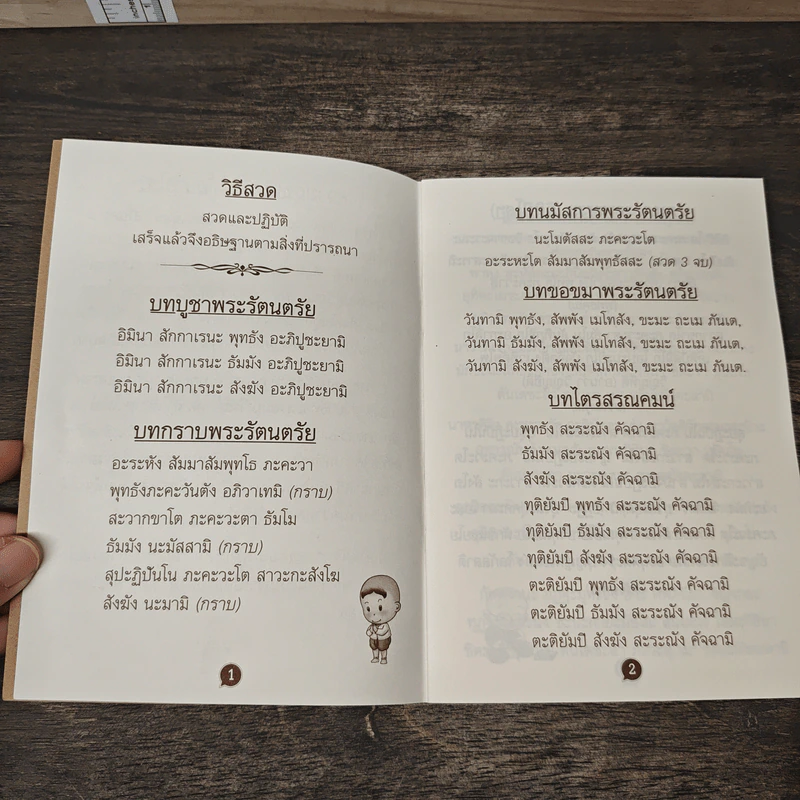 วิธีสวด
สวดและปฏิบัติ
เสร็จแล้วจึงอธิษฐานตามสิ่งที่ปรารถนา
บทบูชาพระรัตนตรัย
อิมินา สักกาเรนะ พุทธัง อะภิปูชะยามิ
อิมินา สักกาเรนะ ธัมมัง อะภิปูชะยามิ
อิมินา สักกาเรนะ สังฆัง อะภิปูชะยามิ
บทกราบพระรัตนตรัย
อะระหัง สัมมาสัมพุทโธ ภะคะวา
พุทธังภะคะวันตัง อภิวาเทมิ (กราบ)
สะวากขาโต ภะคะวะตา ธัมโม
ธัมมัง นะมัสสามิ (กราบ)
สุปะฏิปันโน ภะคะวะโต สาวะกะสังโฆ
สังฆัง นะมามิ (กราบ)
1
บทนมัสการพระรัตนตรัย
นะโมตัสสะ ภะคะวะโต
อะระหะโต สัมมาสัมพุทธัสสะ (สวด 3 จบ)
บทขอขมาพระรัตนตรัย
วันทามิ พุทธัง, สัพพัง เมโทสัง, ขะมะ ถะเม ภันเต,
วันทามิ ธัมมัง, สัพพัง เมโทสัง, ขะมะ ถะเม ภันเต,
วันทามิ สังฆัง, สัพพัง เมโทสัง, ขะมะ ถะเม ภันเต.
บทไตรสรณคมน์
พุทธัง สะระณัง คัจฉามิ
ธัมมัง สะระณัง คัจฉามิ
สังฆัง สะระณัง คัจฉามิ
ทุติยัมปิ พุทธัง สะระณัง คัจฉามิ
ทุติยัมปิ ธัมมัง สะระณัง คัจฉามิ
ทุติยัมปิ สังฆัง สะระณัง คัจฉามิ
ตะติยัมปิ พุทธัง สะระณัง คัจฉามิ
ตะติยัมปิ ธัมมัง สะระณัง คัจฉามิ
ตะติยัมปิ สังฆัง สะระณัง คัจฉามิ
2